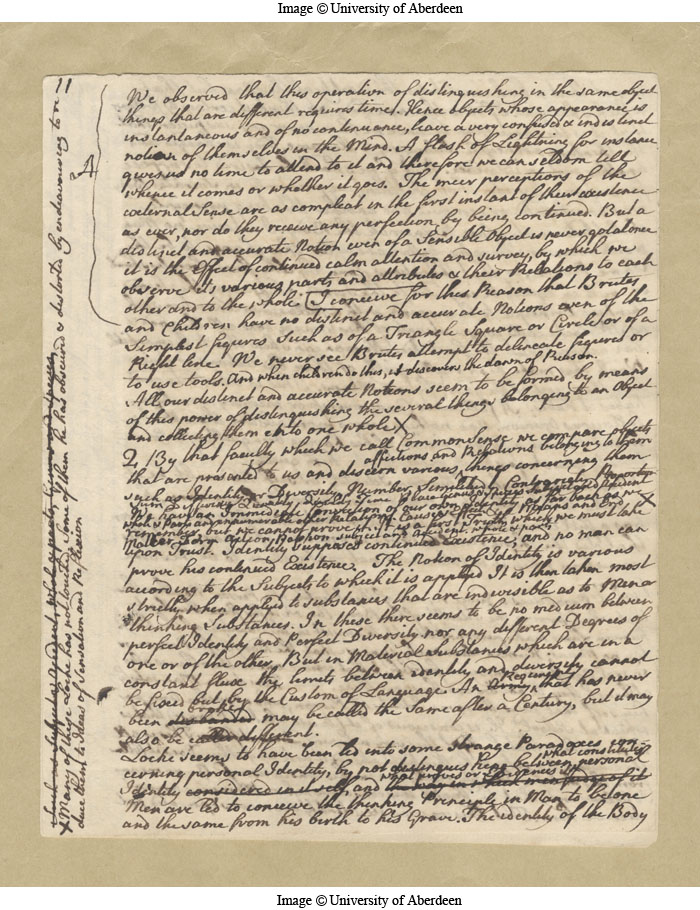 Image © University of Aberdeen
11
We observed that this operation of distinguishing in the same object
things that are different requires time. Hence objects whose appearance is
instantaneous and of no continuance, leave a very confused & indistinct
notion of themselves in the Mind. A flash of Lightning for instance
gives us no time to attend to it and therefore we can seldom tell
whence it comes or whether it goes. The meer perceptions of the
external Sense are as compleat in the first instant of their existence
as ever, nor do they receive any perfection by being continued. But a
distinct and accurate Notion even of a Sensible Object is never got at once
it is the Effect of continued calm attention and survey, by which we
observe its various parts and attributes & their Relations to each
other and to the whole. I conceive for this Reason that Brutes
and Children have no distinct and accurate Notions even of the
Simplest figures Such as of a Triangle Square or Circle or of a
Right line. We never see Brutes attempt to delineate figures or
to use tools. And when children do this, it discovers the dawn of Reason.
All our distinct and accurate Notions seem to be formed by means
of this power of distinguishing the several things belonging to an Object
and collecting them into one whole X
2 By that faculty which we call Common Sense we compare objects
affections and Relations belonging to them
that are presented to us and discern various things concerning them
such as Identity or Diversity, Number, Simplicity
We have an Immediate Conviction of our own as far back as we
remember, but we cannot prove it. It is a first Principle which we must take
upon Trust. Identity supposes continued Existence, and no man can
prove his continued Existence. The Notion of Identity is various
according to the Subjects to which it is applied It is then taken most
strictly when applied to substances that are indivisible as to Mena
thinking Substances. In these there seems to be no medium between
perfect Identity and Perfect Diversity nor any different Degrees of
one or of the other, But in Material substances which are in a
constant fluxe the limits between identity and diversity cannot
be fixed but by the Custom of Language. An Regiment that has never
broke
been disbanded may be called the Same after a Century, but it may
also be called different.
Locke seems to have been led into some strange Paradoxes con-
cerning personal Identity, by not distinguishing between personal
what constitutes
Identity considered in itself, and
what proves or evidences it
Men are led to conceive the thinking Principle in Man to be one
and the same from his birth to his Grave. The identity of the Body
A
X Many of these Locke has not touched, some of them he has obscured & distorted by endeavouring to re
duce them to Ideas of Sensation and Reflexion
Image © University of Aberdeen